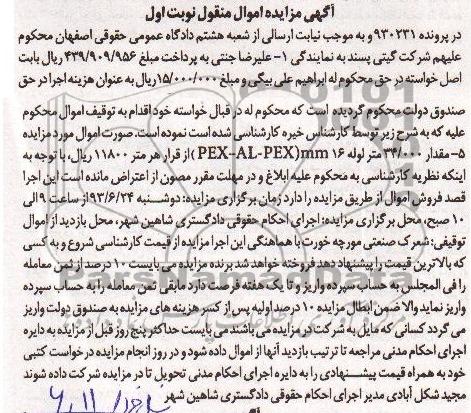 آگهی مزایده اموال منقول نوبت اول
در پرونده ۹۳۰۲۳۱ و به موجب نیابت ارسالی از شعبه هشتم دادگاه عمومی حقوقی اصفهان محکوم
علیهم شرکت گیتی پسند به نمایندگی ۱- علیرضا جنتی به پرداخت مبلغ ۴۳۹/۹۰۹/۹۵۶ ریال بابت
اصل خواسته در حق محکوم له ابراهیم علی بیگی و مبلغ ۱۵/۰۰۰/۰۰۰ ریال به عنوان هزینه اجرا در حق
صندوق دولت محکوم گردیده است که محکوم له در قبال خواسته خود اقدام به توقیف اموال محکوم
علیه که به شرح زیر توسط کارشناس خبره کارشناسی شده است نموده است. صورت اموال مورد مزایده
۵- مقدار ۳۴/۰۰۰ متر لوله ۱۶ PEX-AL-PEX)mm) از قرار هر متر ۱۱۸۰۰ ریال، با توجه به
اینکه نظریه کارشناسی به محکوم علیه ابلاغ و در مهلت مقرر مصون از اعتراض مانده است این اجرا
قصد فروش اموال از طریق مزایده را دارد زمان برگزاری مزایده: دوشنبه ۹۳/۶/۲۴ از ساعت ۹ الی
۱۰ صبح، محل برگزاری مزایده: اجرای احکام حقوقی دادگستری شاهین شهر، محل بازدید از اموال
توقیفی: شهرک صنعتی مورچه خورت با هماهنگی این اجرا مزایده از قیمت کارشناسی شروع و به کسی
که بالاترین قیمت را پیشنهاد دهد فروخته خواهد شد برنده مزایده می بایست ۱۰ درصد از ثمن معامله
را فی المجلس به حساب سپرده واریز و تا یک هفته فرصت دارد مابقی ثمن معامله را به حساب سپرده
واریز نماید والا ضمن ابطال مزایده ۱۰ درصد اولیه پس از کسر هزینه های مزایده به صندوق دولت واریز
می گردد کسانی که مایل به شرکت در مزایده می باشند می بایست حداکثر پنج روز قبل از مزایده به دایره
اجرای احکام مدنی مراجعه تا ترتیب بازدید آنها از اموال داده شود و در روز انجام مزایده درخواست کتبی
خود به همراه قیمت پیشنهادی را به دایره اجرای احکام مدنی تحویل تا در مزایده شرکت داده شوند
مجید شکل آبادی مدیر اجرای احکام حقوقی دادگستری شاهین شهر